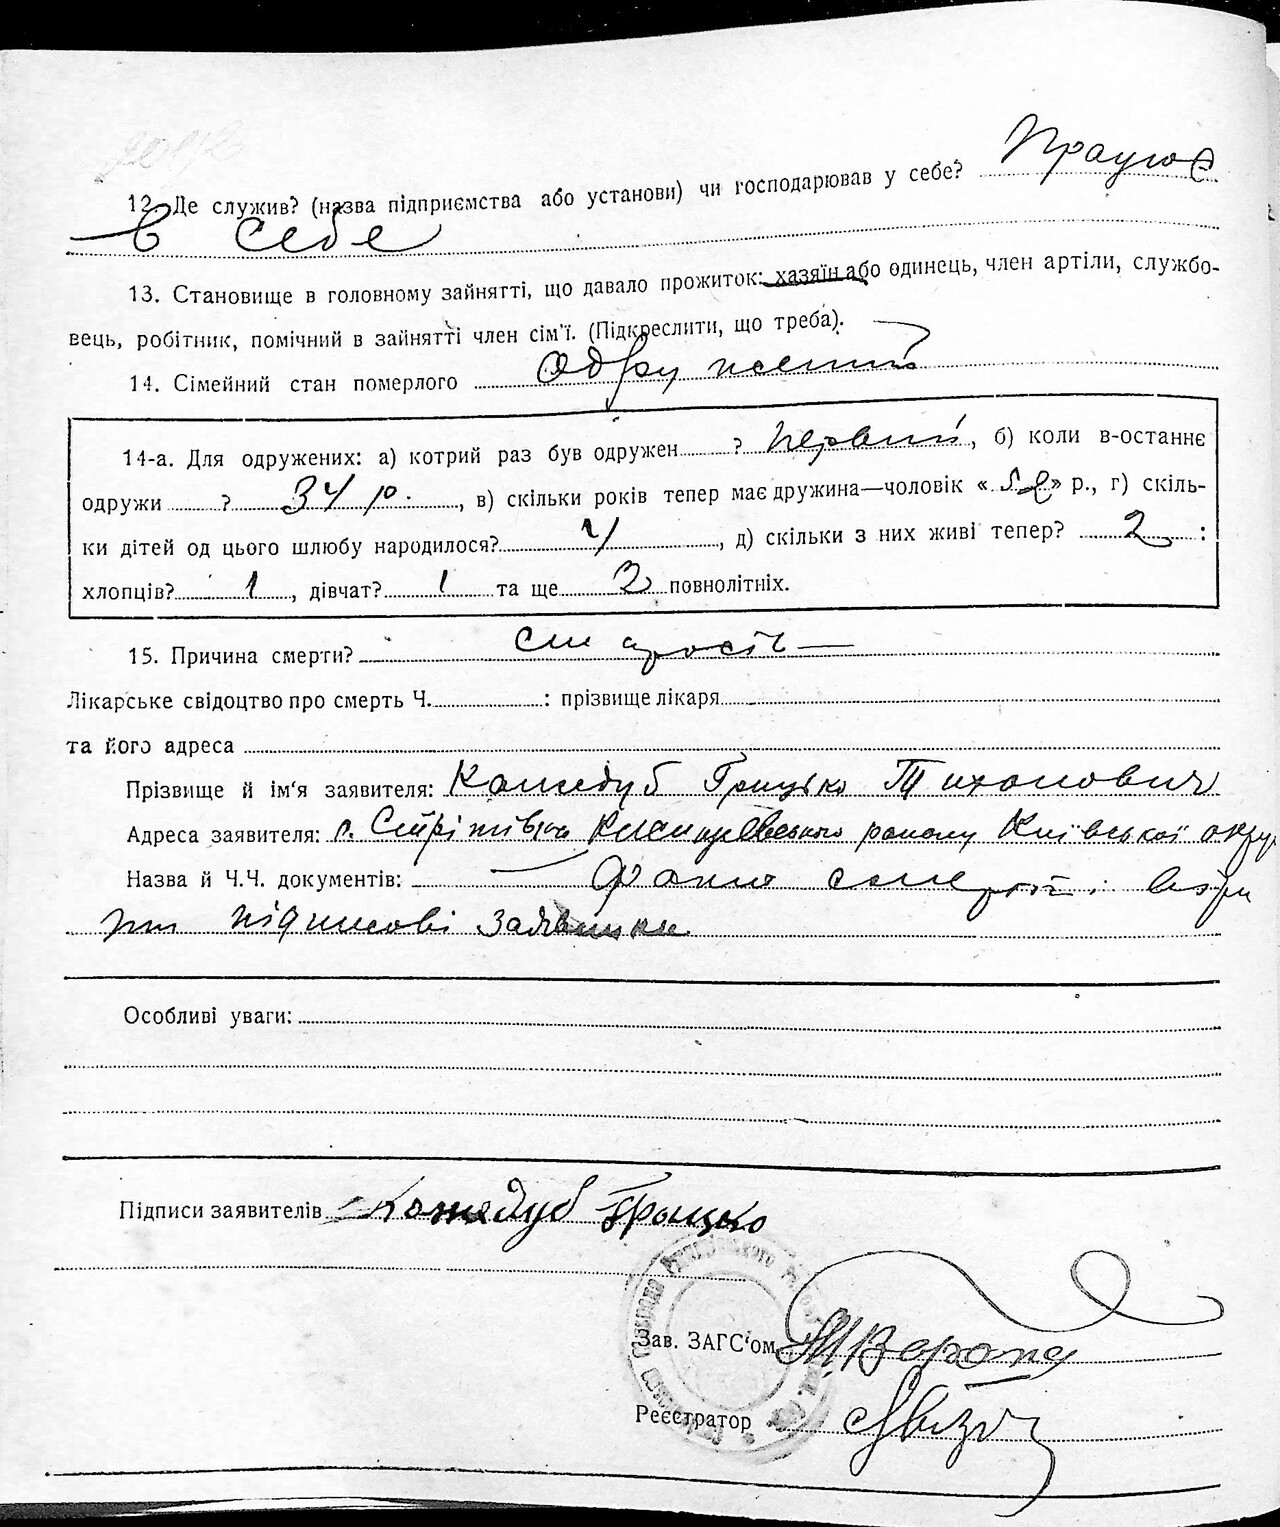 12. Де служив? (назва підприємства або установи) чи господарював у себе? Працює
в себе
13. Становище в головному зайнятті, що давало прожиток: хазяїн або одинець, член артіли, службо-
вець, робітник, помічний в зайнятті член сім'ї. (Підкреслити, що треба).
14. Сімейний стан померлого одружений
14-а. Для одружених: а) котрий раз був одружен ? первий, б) коли в-останнє
одружи ? 34 р., в) скільки років тепер має дружина—чоловік « » р., г) скіль-
ки дітей од цього шлюбу народилося? 4, д) скільки з них живі тепер? 2 :
хлопців? 1, дівчат? 1 та ще 2 повнолітніх.
15. Причина смерти? старість
Лікарське свідоцтво про смерть Ч. : прізвище лікаря
та його адреса
Прізвище й ім'я заявителя: Кожедуб Грицько Тихонович
Адреса заявителя: с. Стрітівка Київської округ
Назва й Ч.Ч. документів: — Факт смерті
підписові заявника
Особливі уваги:
Підписи заявителів Кожедуб Грицько
Зав. ЗАГС'ом
Реєстратор